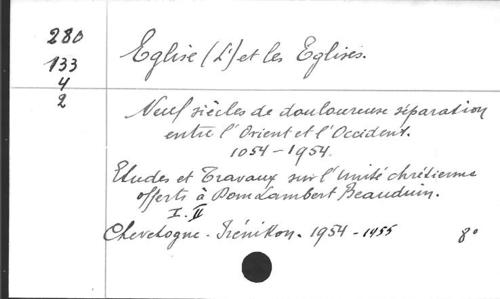 280
133
4
2
Eglise (L') et les Eglises.
Neuf siècles de douloureuse séparation
entre l'Orient et l'Occident.
1054-1954.
Etudes et Travaux sur l'Unité chrétienne
offerts à Dom Lambert Beauduin.
I. II
Chevetogne - Irénikon. 1954-1955 8°